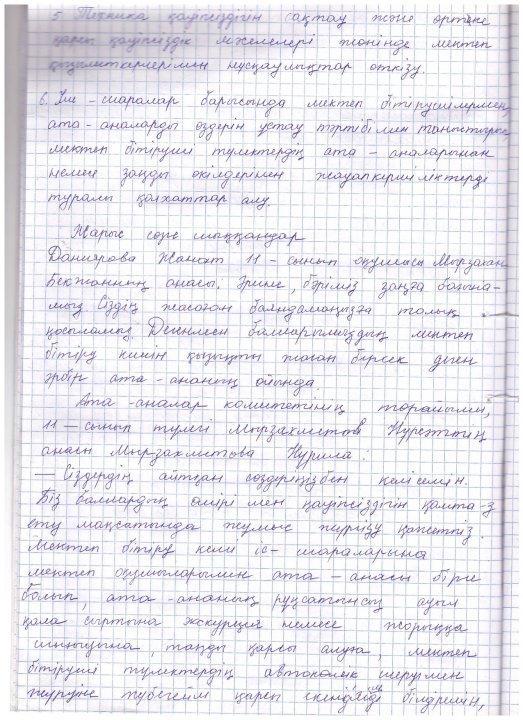 5. Техника қауіпсіздігін сақтау және өртке
қарсы қауіпсіздік мәселелері жөнінде мектеп
қызметкерлерімен нұсқаулықтар өткізу.
6. Іс-шаралар барысында мектеп бітірушілермен,
ата-аналарды өздерін ұстау тәртібімен таныстыру
мектеп бітіруші түлектердің ата-аналарынан
немесе заңды өкілдерінен жауапкершіліктері
туралы қолхаттар алу.
Жарыс сөзге шыққандар
Даниярова Жанат 11-сынып оқушысы Мырзахан
Бекжанның анасы. Әрине, бәріміз заңға бағына-
мыз. Сіздің жасаған баяндамаңызға толық
қосыламыз. Дегенмен балаларымыздың мектеп
бітіру кешін қызықты жасап берсек деген
әрбір ата-ананың ойында.
Ата-аналар комитетінің төрайымы,
11-сынып түлегі Мырзахметов Нұрсұлтанның
анасы Мырзахметова Нурила:
— Сіздердің айтқан сөздеріңізбен келісемін.
Біз балалардың өмірі мен қауіпсіздігін қамта-з
ету мақсатында жұмыс жүргізу қажетпіз.
Мектеп бітіру кеші іс-шараларына
мектеп оқушыларымен ата-анасы бірге
болып, ата-ананың рұқсатынсыз ауыл
қала сыртына экскурсия немесе жорыққа
шығуына, таңды қарсы алуға, мектеп
бітіруші түлектердің автокөлік шеруімен
жүруіне түбегейлі қарсы екендігімді білдіремін,